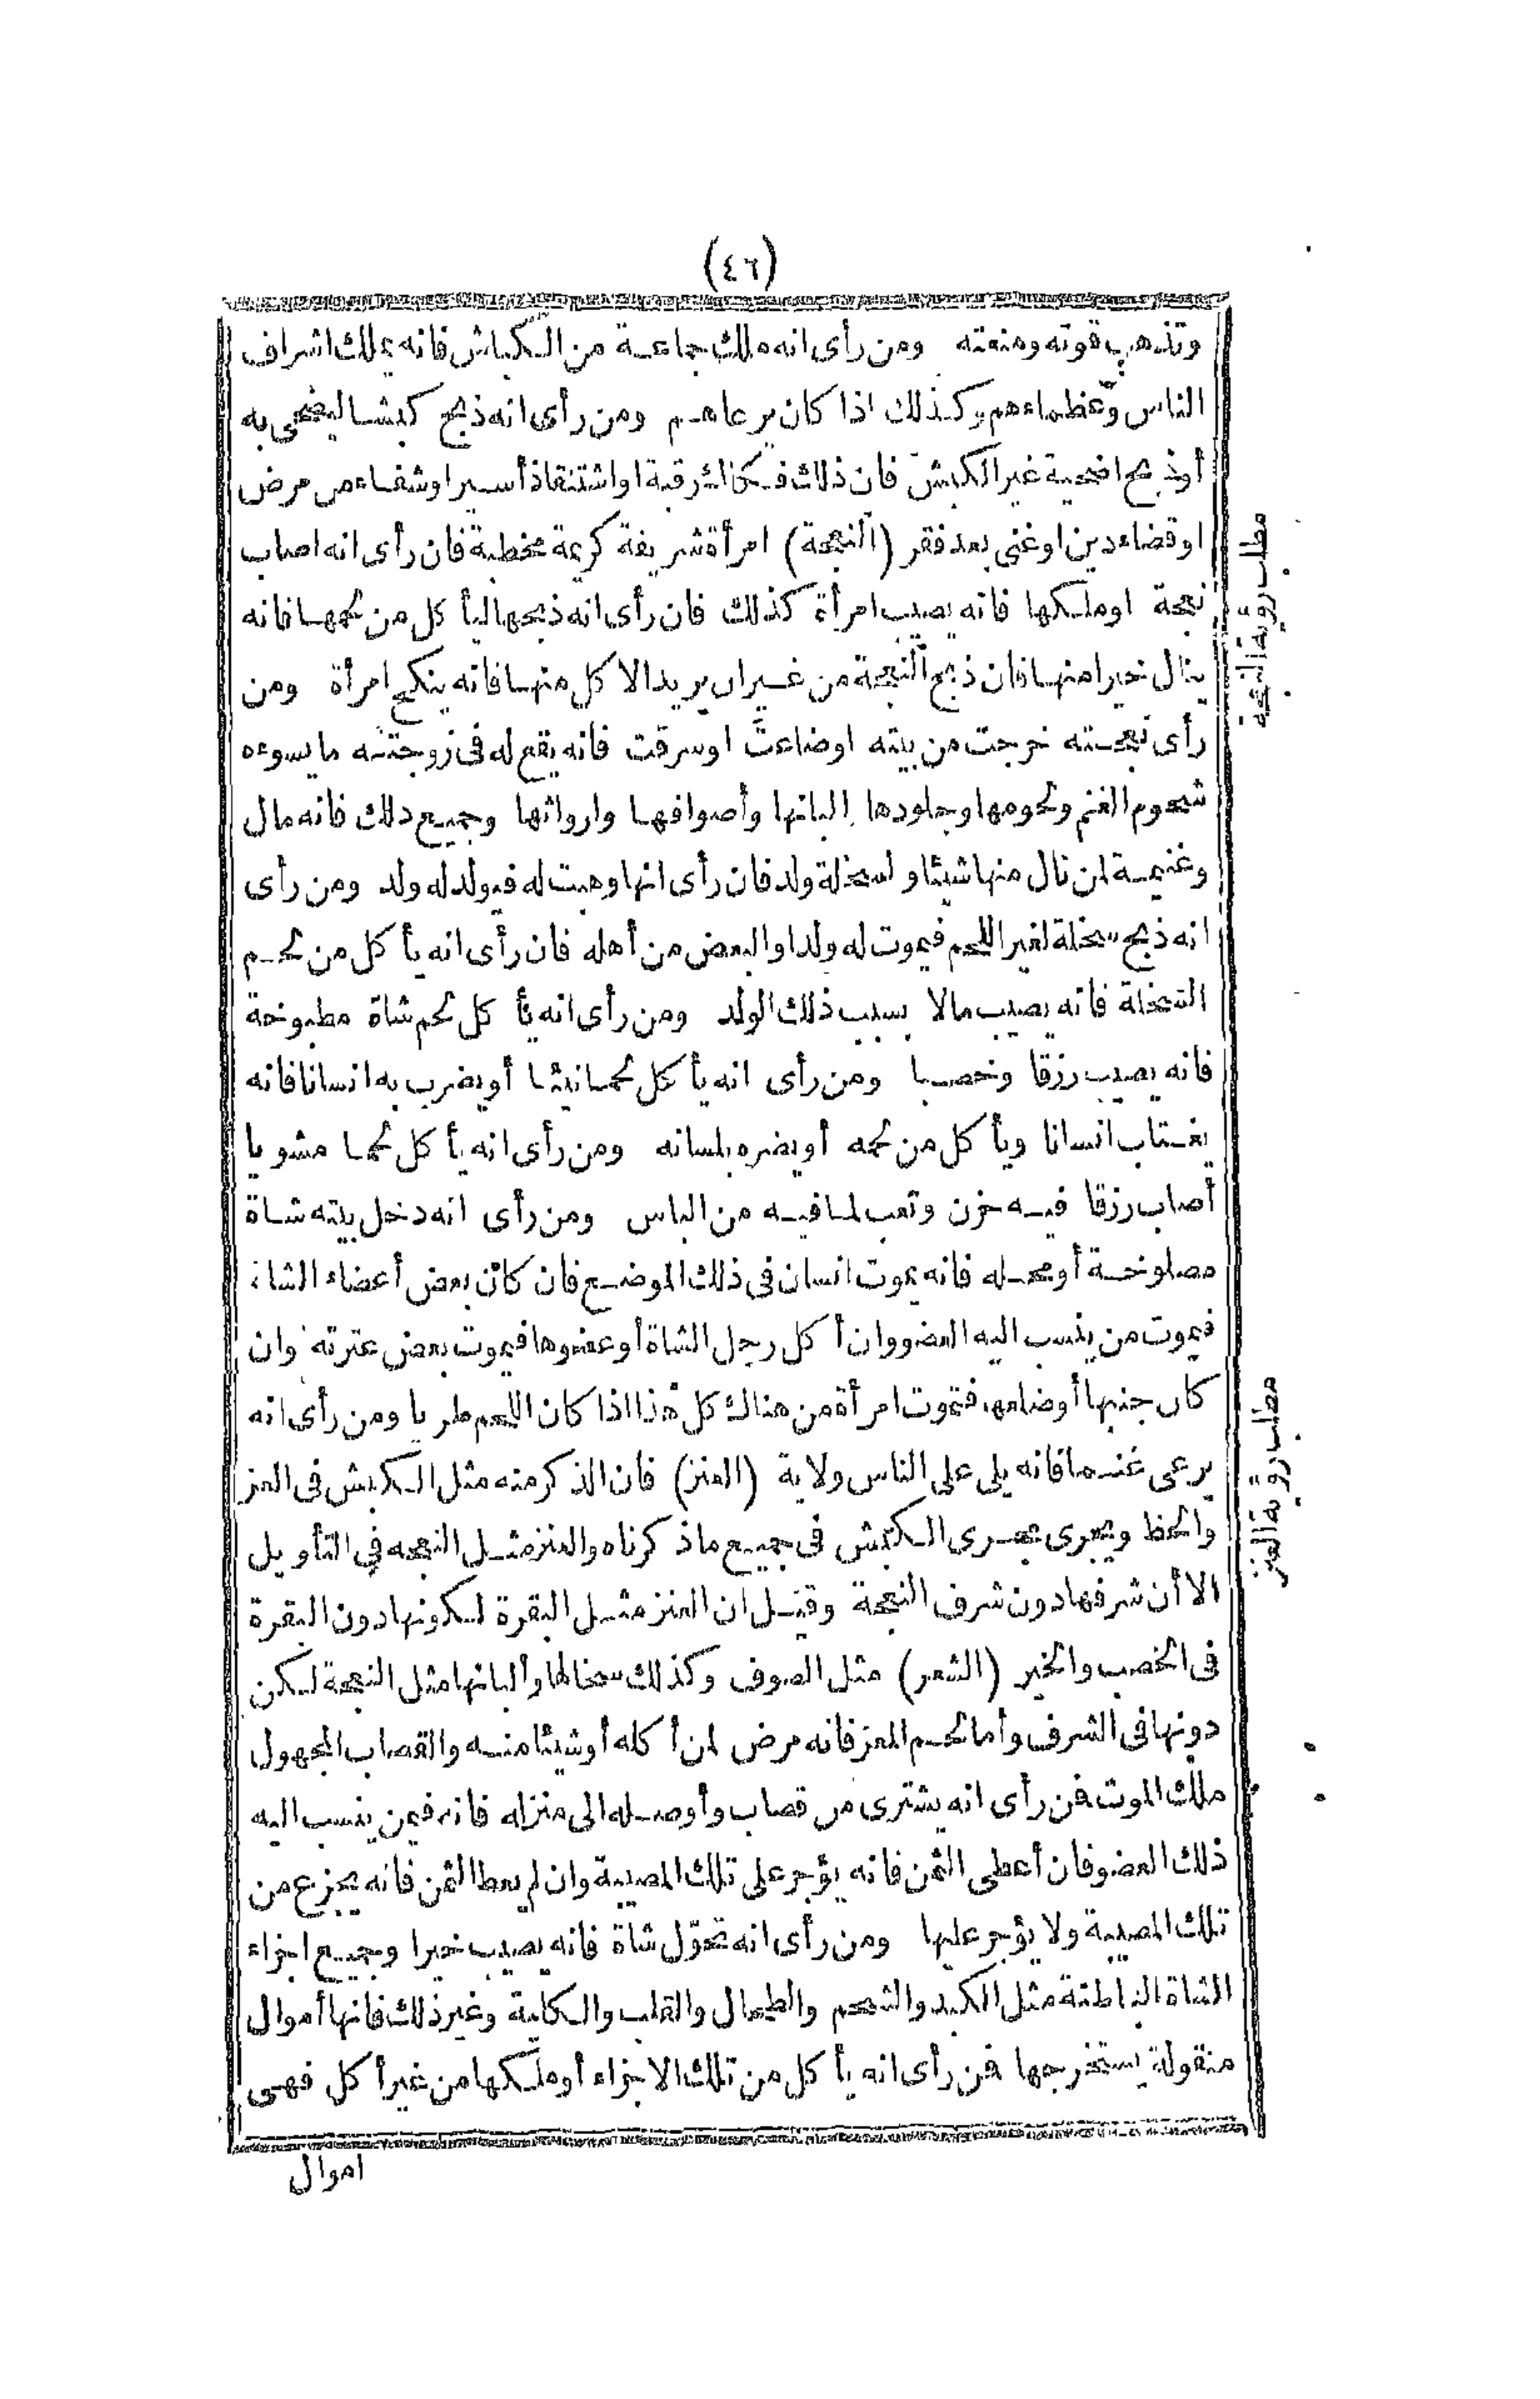 (٤٦)
وتذهب قوته ومنعته ومن رأى انه ملك جماعة من الكباش فانه يملك اشراف
الناس وعظماءهم وكذلك اذا كان يرعاهم ومن رأى انه ذبح كبشا ليضحى به
أوذبح اضحية غير الكبش فان ذلك فكاك رقبة او اشتنقاذ أسير او شفاء من مرض
او قضاء دين او غنى بعد فقر (النعجة) امرأة شريفة كريمة مخطبة فان رأى انه اصاب
نعجة او ملكها فانه يصيب امرأة كذلك فان رأى انه ذبحها ليأ كل من لحمها فانه
ينال خيرا منها فان ذبح النعجة من غير ان يريد الا كل منها فانه ينكح امرأة ومن
رأى نعجته خرجت من بيته او ضاعت او سرقت فانه يقع له فى زوجته ما يسوءه
شحوم الغنم ولحومها وجلودها البانها وأصوافها وارواثها وجميع ذلك فانه مال
وغنيمة لمن نال منها شيئا والسخلة ولد فان رأى انها وهبت له فيولد له ولد ومن رأى
انه ذبح سخلة لغير اللحم فيموت له ولد او البعض من أهله فان رأى انه يأ كل من لحم
السخلة فانه يصيب مالا بسبب ذلك الولد ومن رأى انه يأ كل لحم شاة مطبوخة
فانه يصيب رزقا وخصبا ومن رأى انه يأ كل لحما نيئا أو يضرب به انسانا فانه
يغتاب انسانا ويأ كل من لحمه أو يضره بلسانه ومن رأى انه يأ كل لحما مشويا
أصاب رزقا فيه حزن وتعب لما فيه من الباس ومن رأى انه دخل بيته شاة
مصلوخة أو محله فانه يموت انسان فى ذلك الموضع فان كان بعض أعضاء الشاة
فيموت من ينسب اليه العضو وان أ كل رجل الشاة أو عضوها فيموت بعض عترته وان
كان جنبها أو ضلعها فتموت امرأة من هناك كل هذا اذا كان اللحم طريا ومن رأى انه
يرعى غنما فانه يلى على الناس ولاية (العنز) فان الذكر منه مثل الكبش فى العز
والحظ ويجرى مجرى الكبش فى جميع ما ذكرناه والعنز مثل النعجه فى التأويل
الا أن شرفها دون شرف النعجة وقيل ان العنز مثل البقرة لكونها دون البقرة
فى الخصب والخير (الشعر) مثل الصوف وكذلك سخالها وألبانها مثل النعجة لكن
دونها فى الشرف وأما لحم المعز فانه مرض لمن أ كله أو شيئا منه والقصاب المجهول
ملك الموت فمن رأى انه يشترى من قصاب وأوصله الى منزله فانه فيمن ينسب اليه
ذلك العضو فان أعطى الثمن فانه يؤجر على تلك المصيبة وان لم يعط الثمن فانه يجزع من
تلك المصيبة ولا يؤجر عليها ومن رأى انه تحوّل شاة فانه يصيب خيرا وجميع اجزاء
الشاة الباطنة مثل الكبد والشحم والطحال والقلب والكلية وغير ذلك فانها أموال
منقولة يستخرجها فمن رأى انه يأ كل من تلك الاجزاء أو ملكها من غير أ كل فهى
اموال
مطلب رؤية النعجة
مطلب رؤية العنز